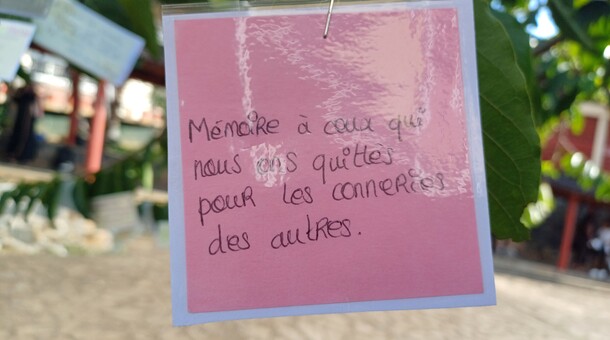 Mémoire à ceux qui
nous ons quittés
pour les conneries
des autres.